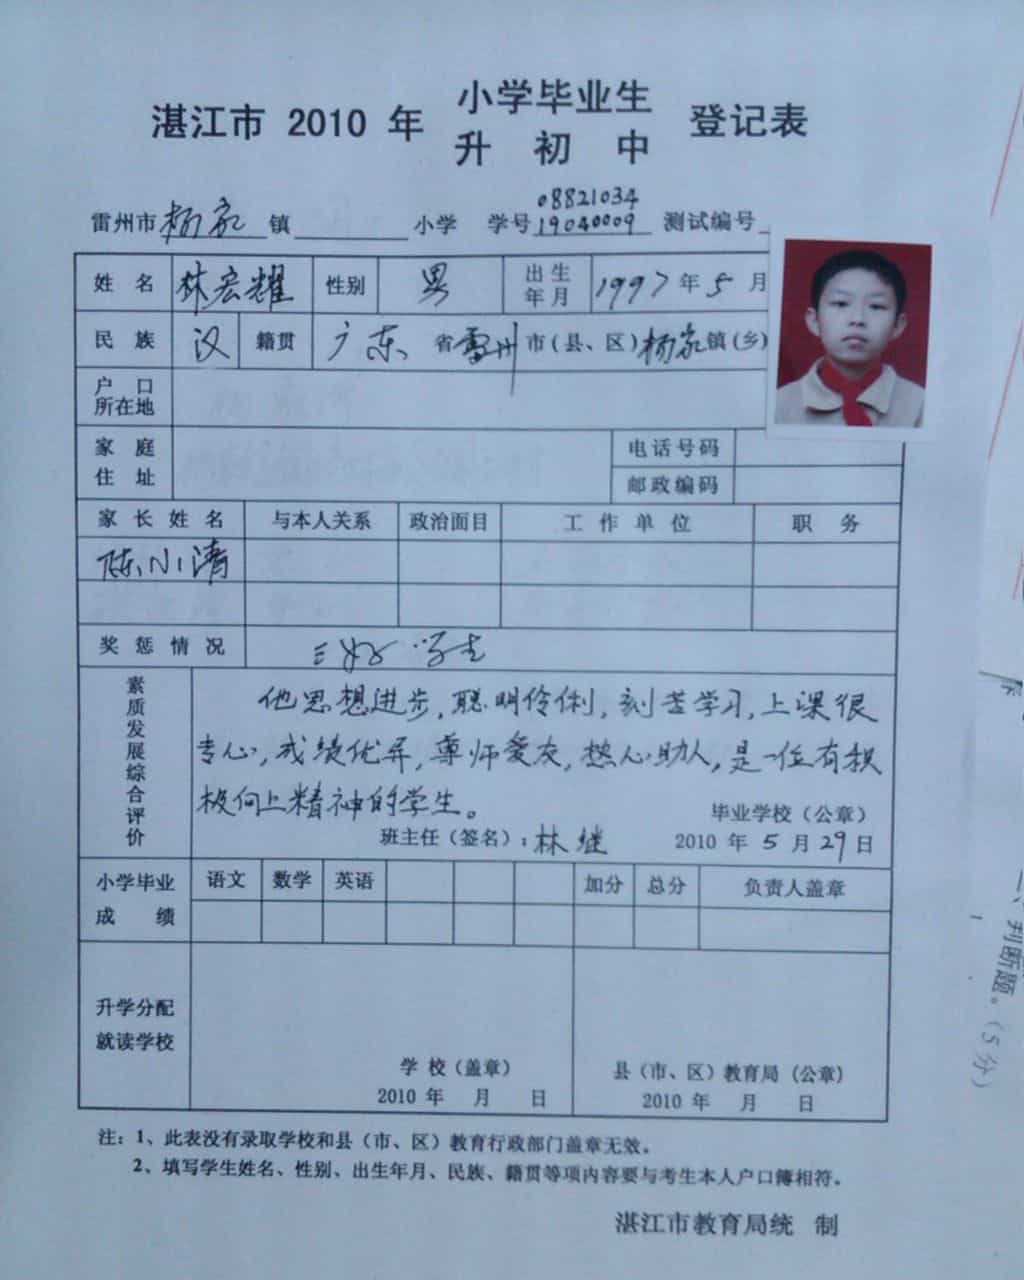 湛江市 2010 年 小学毕业生 登记表
升 初 中
08821034
雷州市杨家镇 小学 学号19040009 测试编号
姓 名 林宏耀 性别 男 出生年月 1997年5月
民 族 汉 籍贯 广东省雷州市(县、区)杨家镇(乡)
户 口
所在地
家 庭 电话号码
住 址 邮政编码
家长姓名 与本人关系 政治面目 工作单位 职务
陈小清
奖惩情况 三好学生
素质发展综合评价
他思想进步,聪明伶俐,刻苦学习,上课很
专心,成绩优异,尊师爱友,热心助人,是一位有积
极向上精神的学生。
毕业学校(公章)
班主任(签名):林继 2010 年 5 月 29 日
小学毕业 语文 数学 英语 加分 总分 负责人盖章
成 绩
升学分配
就读学校
学校(盖章) 县(市、区)教育局(公章)
2010 年 月 日 2010 年 月 日
注:1、此表没有录取学校和县(市、区)教育行政部门盖章无效。
2、填写学生姓名、性别、出生年月、民族、籍贯等项内容要与考生本人户口簿相符。
湛江市教育局统 制
判断题。(5分)